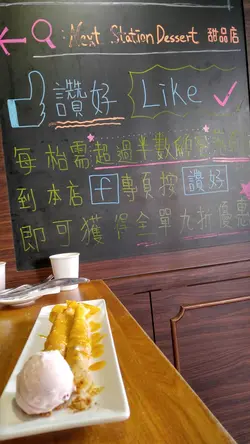 : Next Station Dessert 甜品店
讚好 Like
每枱需超過半數的客人
到本店 f 專頁按 讚好
即可獲得全單九折優惠